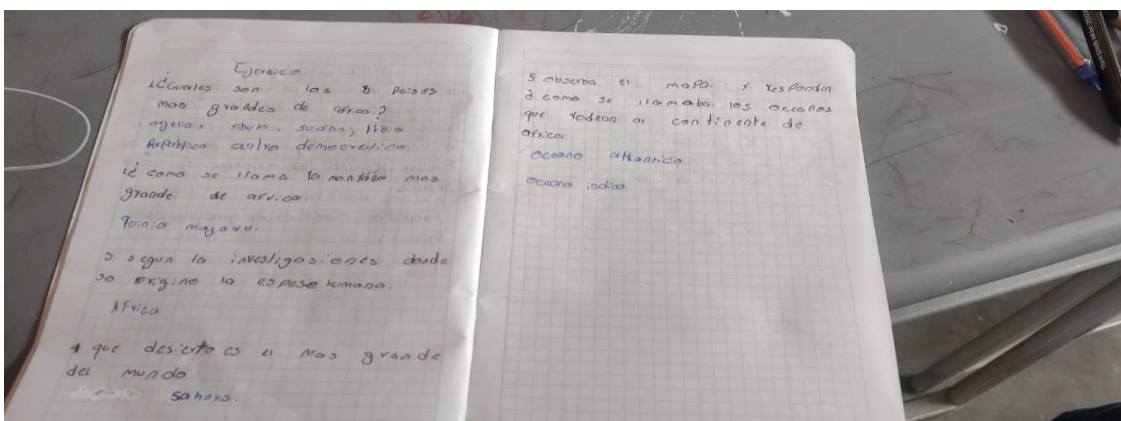 Ejersicio
1¿Cuales son los 5 paises
mas grandes de africa?
argelia, sudan, libia
Republica centro democratica
2¿ como se llama la montaña mas
grande de africa
3 segun la investigasiones donde
se origino la espese humana.
Africa
4 que desierto es el mas grande
del mundo
sahara.
5 observa el mapa. y responda
¿ como se llamaba los occanos
que rodean al continente de
africa
oceano atlantico
oceano indico